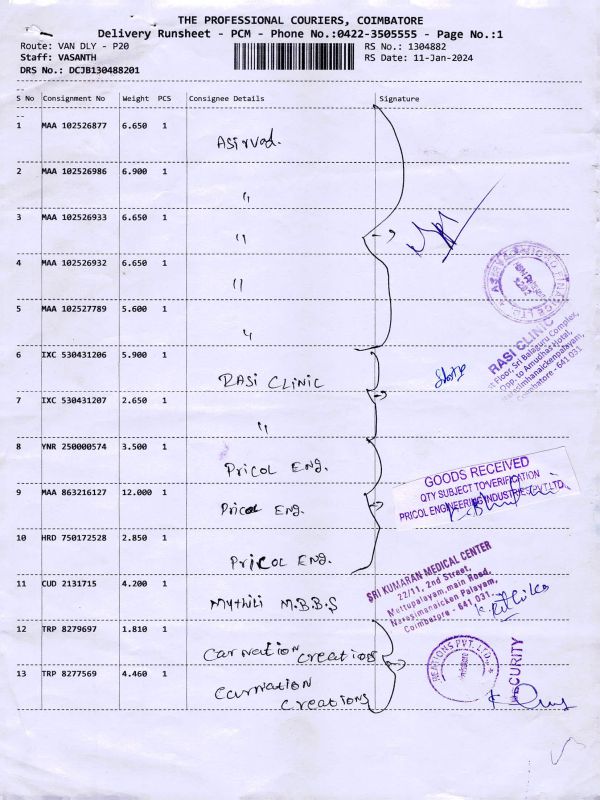 THE PROFESSIONAL COURIERS, COIMBATORE
Delivery Runsheet - PCM - Phone No.:0422-3505555 - Page No.:1
Route: VAN DLY - P20 RS No.: 1304882
Staff: VASANTH RS Date: 11-Jan-2024
DRS No.: DCJB130488201
S No Consignment No Weight PCS Consignee Details Signature
1 MAA 102526877 6.650 1 Asirvad.
2 MAA 102526986 6.900 1 "
3 MAA 102526933 6.650 1 "
4 MAA 102526932 6.650 1 "
5 MAA 102527789 5.600 1 "
6 IXC 530431206 5.900 1 RASI CLINIC
RASI CLINIC
st Floor, Sri Balaguru Complex,
Opp. to Amudhas Hotel,
Narasimhanaickenpalayam,
Coimbatore - 641 031
7 IXC 530431207 2.650 1 "
8 YNR 250000574 3.500 1 Pricol Eng.
GOODS RECEIVED
QTY SUBJECT TO VERIFICATION
PRICOL ENGINEERING INDUSTRIES PVT.LTD.
9 MAA 863216127 12.000 1 Pricol Eng.
10 HRD 750172528 2.850 1 Pricol Eng.
11 CUD 2131715 4.200 1 Mythili M.B.B.S
SRI KUMARAN MEDICAL CENTER
22/11, 2nd Street,
Mettupalayam, main Road,
Narasimanaicken Palayam,
Coimbatore - 641 031.
12 TRP 8279697 1.810 1 Carnation Creations
REATIONS PVT. LTD.
SECURITY
13 TRP 8277569 4.460 1 Carnation
Creations